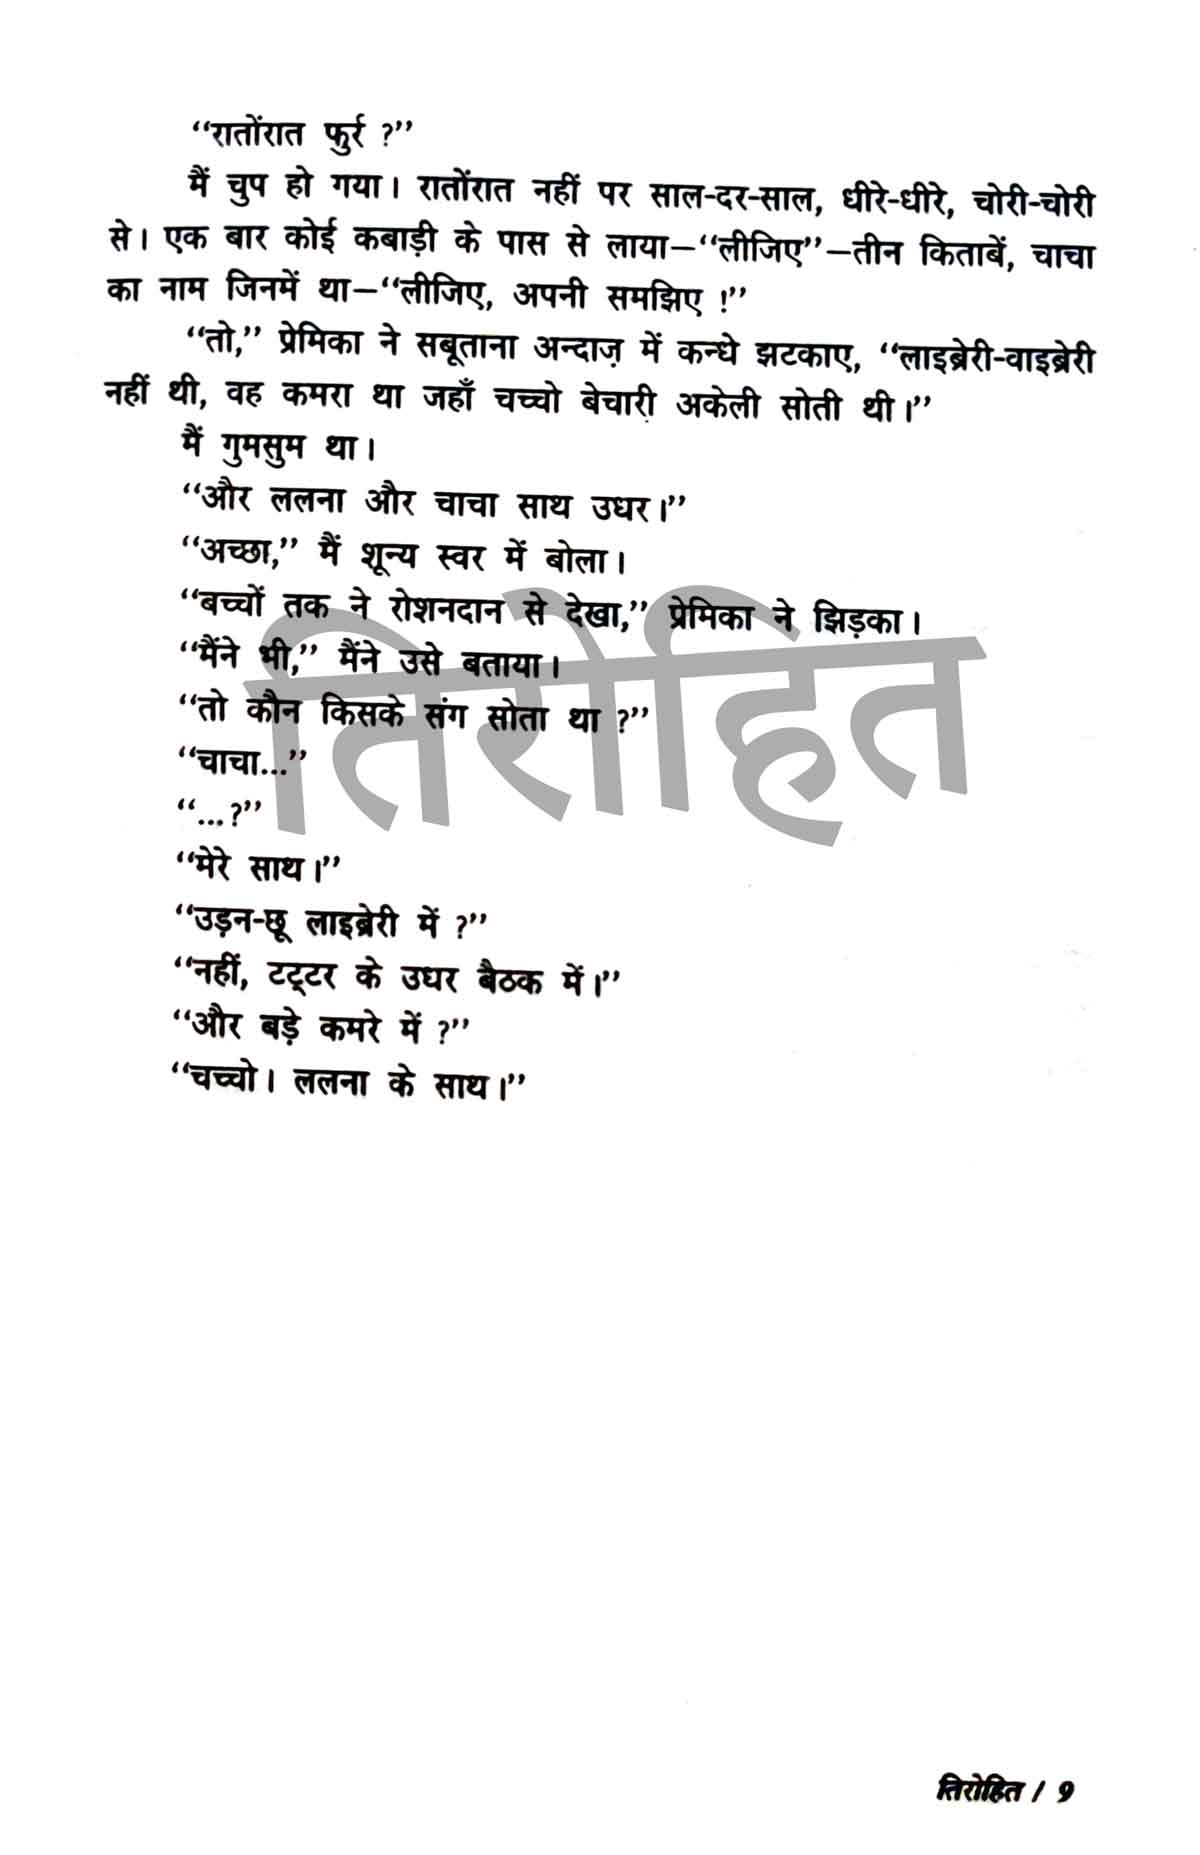 “रातोंरात फुर्र ?”
मैं चुप हो गया। रातोंरात नहीं पर साल-दर-साल, धीरे-धीरे, चोरी-चोरी
से। एक बार कोई कबाड़ी के पास से लाया—“लीजिए”—तीन किताबें, चाचा
का नाम जिनमें था—“लीजिए, अपनी समझिए !”
“तो,” प्रेमिका ने सबूताना अन्दाज़ में कन्धे झटकाए, “लाइब्रेरी-वाइब्रेरी
नहीं थी, वह कमरा था जहाँ चच्चो बेचारी अकेली सोती थी।”
मैं गुमसुम था।
“और ललना और चाचा साथ उधर।”
“अच्छा,” मैं शून्य स्वर में बोला।
“बच्चों तक ने रोशनदान से देखा,” प्रेमिका ने झिड़का।
“मैंने भी,” मैंने उसे बताया।
तिरोहित
“तो कौन किसके संग सोता था ?”
“चाचा...”
“...?”
“मेरे साथ।”
“उड़न-छू लाइब्रेरी में ?”
“नहीं, टट्टर के उधर बैठक में।”
“और बड़े कमरे में ?”
“चच्चो। ललना के साथ।”
तिरोहित / 9